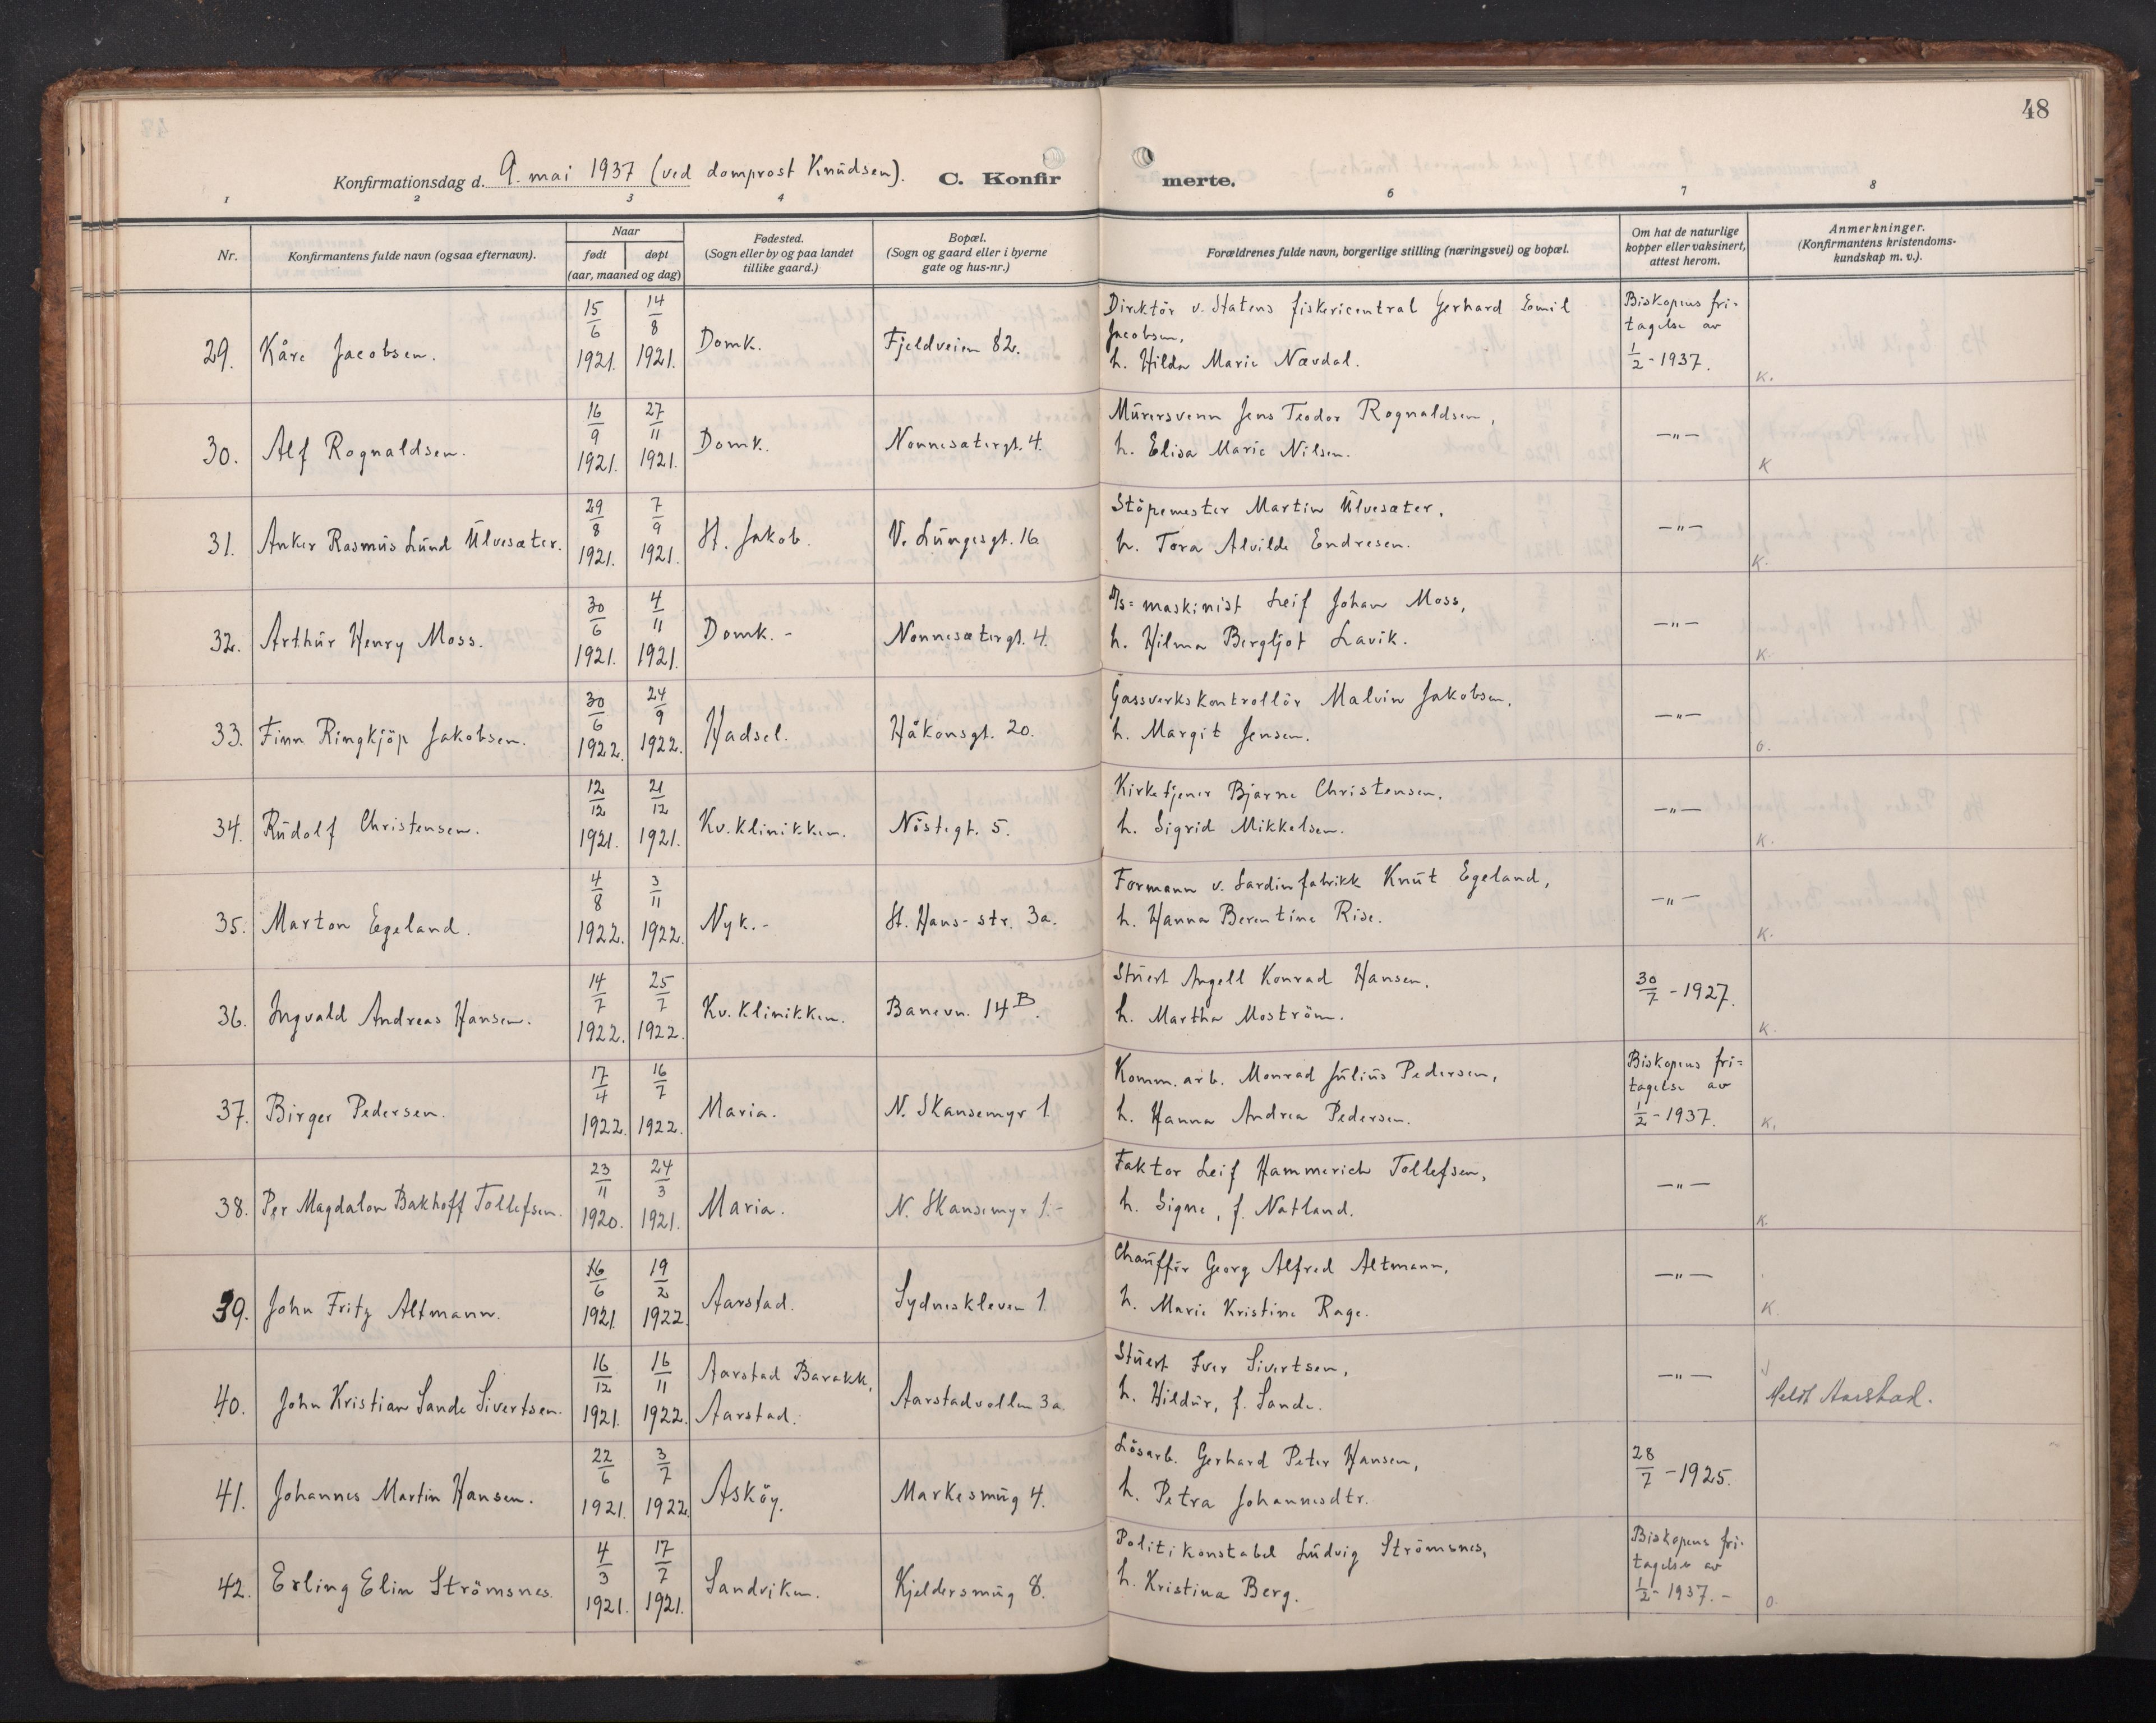 48
Konfirmationsdag d. 9. mai 1937 (ved domprost Knudsen). C. Konfirmerte.
1 2 3 4 5 6 7 8
Nr. Konfirmantens fulde navn (ogsaa efternavn). Naar født døpt (aar, maaned og dag) Fødested. (Sogn eller by og paa landet tillike gaard.) Bopæl. (Sogn og gaard eller i byerne gate og hus-nr.) Forældrenes fulde navn, borgerlige stilling (næringsvei) og bopæl. Om hat de naturlige kopper eller vaksinert, attest herom. Anmerkninger. (Konfirmantens kristendoms-kundskap m. v.).
29. Kåre Jacobsen. 15/6 1921. 14/8 1921. Domk. Fjeldveien 82. Direktör v. Statens fiskericentral Gerhard Emil Jacobsen, h. Hilda Marie Nævdal. Biskopens fri=tagelse av 1/2 - 1937. K.
30. Alf Rognaldsen. 16/9 1921. 27/11 1921. Domk. Nonnesætergt. 4. Murersvenn Jens Teodor Rognaldsen, h. Elisa Marie Nilsen. —"— K
31. Anker Rasmus Lund Ulvesæter. 29/8 1921. 7/9 1921. St. Jakob. V. Lungesgt. 16. Stöpemester Martin Ulvesæter, h. Tora Alvilde Endresen. —"— K.
32. Arthur Henry Moss. 30/6 1921. 4/11 1921. Domk. - Nonnesætergt. 4. maskinist Leif Johan Moss, h. Hilma Bergljot Lavik. —"— K.
33. Finn Ringkjöp Jakobsen. 30/6 1922. 24/9 1922. Hadsel. Håkonsgt. 20. Gassverkskontrollör Malvin Jakobsen, h. Margit Jensen. —"— o.
34. Rudolf Christensen. 12/12 1921. 21/12 1921. Kv. klinikken. Nöstegt. 5. Kirketjener Bjarne Christensen, h. Sigrid Mikkelsen. —"— K.
35. Marton Egeland. 4/8 1922. 3/11 1922. Nyk. - St. Hans-str. 3a. Formann v. Sardinfabrikk Knut Egeland, h. Hanna Berentine Rise. —"— K.
36. Ingvald Andreas Hansen. 14/7 1922. 25/7 1922. Kv. klinikken. Banevn. 14 B. Stuert Angell Konrad Hansen, h. Martha Moström. 30/7 - 1927. K.
37. Birger Pedersen. 17/4 1922. 16/7 1922. Maria. N. Skansemyr 1. Komm. arb. Monrad Julius Pedersen, h. Hanna Andrea Pedersen. Biskopens fri=tagelse av 1/2 - 1937. K.
38. Per Magdalon Bakhoff Tollefsen. 23/11 1920. 24/3 1921. Maria. N. Skansemyr 1. - Faktor Leif Hammerich Tollefsen, h. Signe, f. Natland. —"— K.
39. John Fritz Altmann. 16/6 1921. 19/2 1922. Aarstad. Sydneskleven 1. Chaufför Georg Alfred Altmann, h. Marie Kristine Rage. —"— K.
40. John Kristian Sande Sivertsen. 16/12 1921. 16/11 1922. Aarstad Barakk, Aarstad. Aarstadvollen 3a. Stuert Iver Sivertsen, h. Hildur, f. Sande. —"— Meldt Aarstad.
41. Johannes Martin Hansen. 22/6 1921. 3/7 1922. Asköy. Markesmug 4. Lösarb. Gerhard Peter Hansen, h. Petra Johannesdtr. 28/7 - 1925.
42. Erling Elin Strömsnes. 4/3 1921. 17/7 1921. Sandviken. Kjeldersmug 8. Politikonstabel Ludvig Strömsnes, h. Kristina Berg. Biskopens fri-tagelse av 1/2 - 1937. - o.